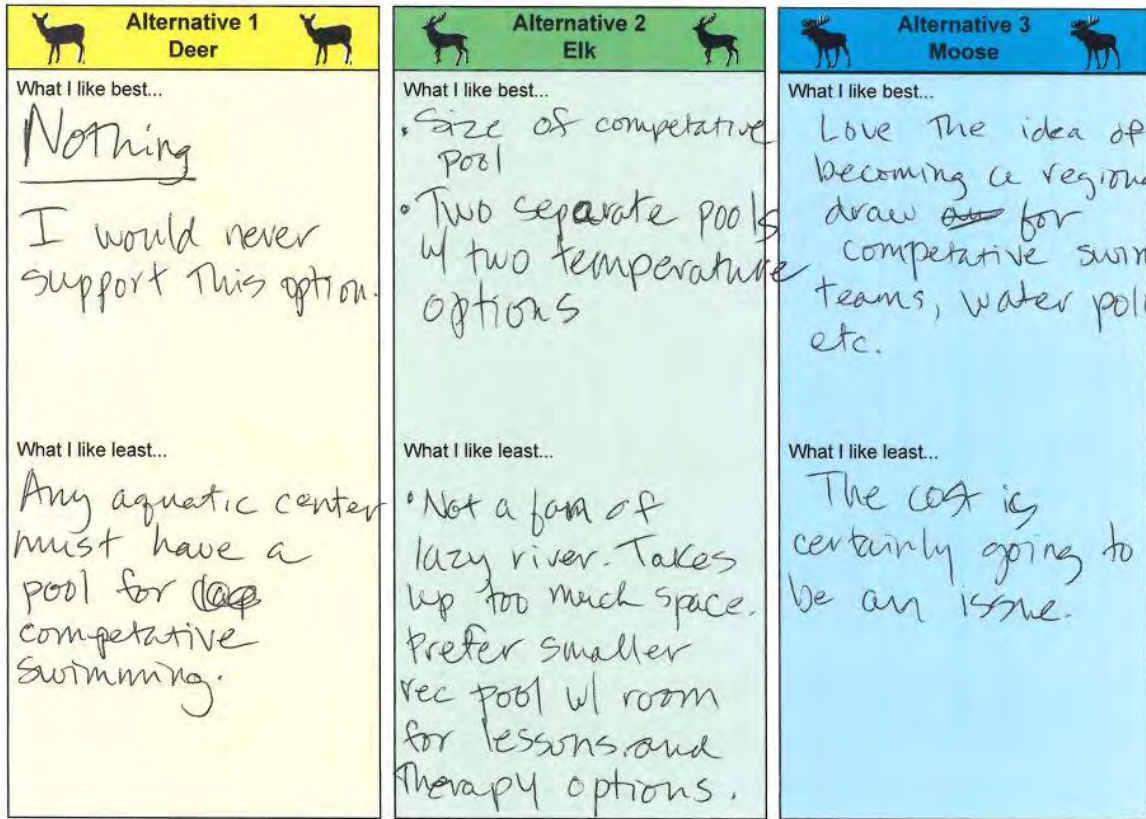 Alternative 1
Deer
What I like best...
Nothing
I would never
support This option.
What I like least...
Any aquatic center
must have a
pool for
competative
swimming.
Alternative 2
Elk
What I like best...
• Size of competative
pool
• Two separate pools
w/ two temperature
options
What I like least...
• Not a fam of
lazy river. Takes
up too much space.
Prefer smaller
rec pool w/ room
for lessons and
Therapy options.
Alternative 3
Moose
What I like best...
Love The idea of
becoming a regiona
draw for
competative swim
teams, water polo
etc.
What I like least...
The cost is
certainly going to
be an issue.